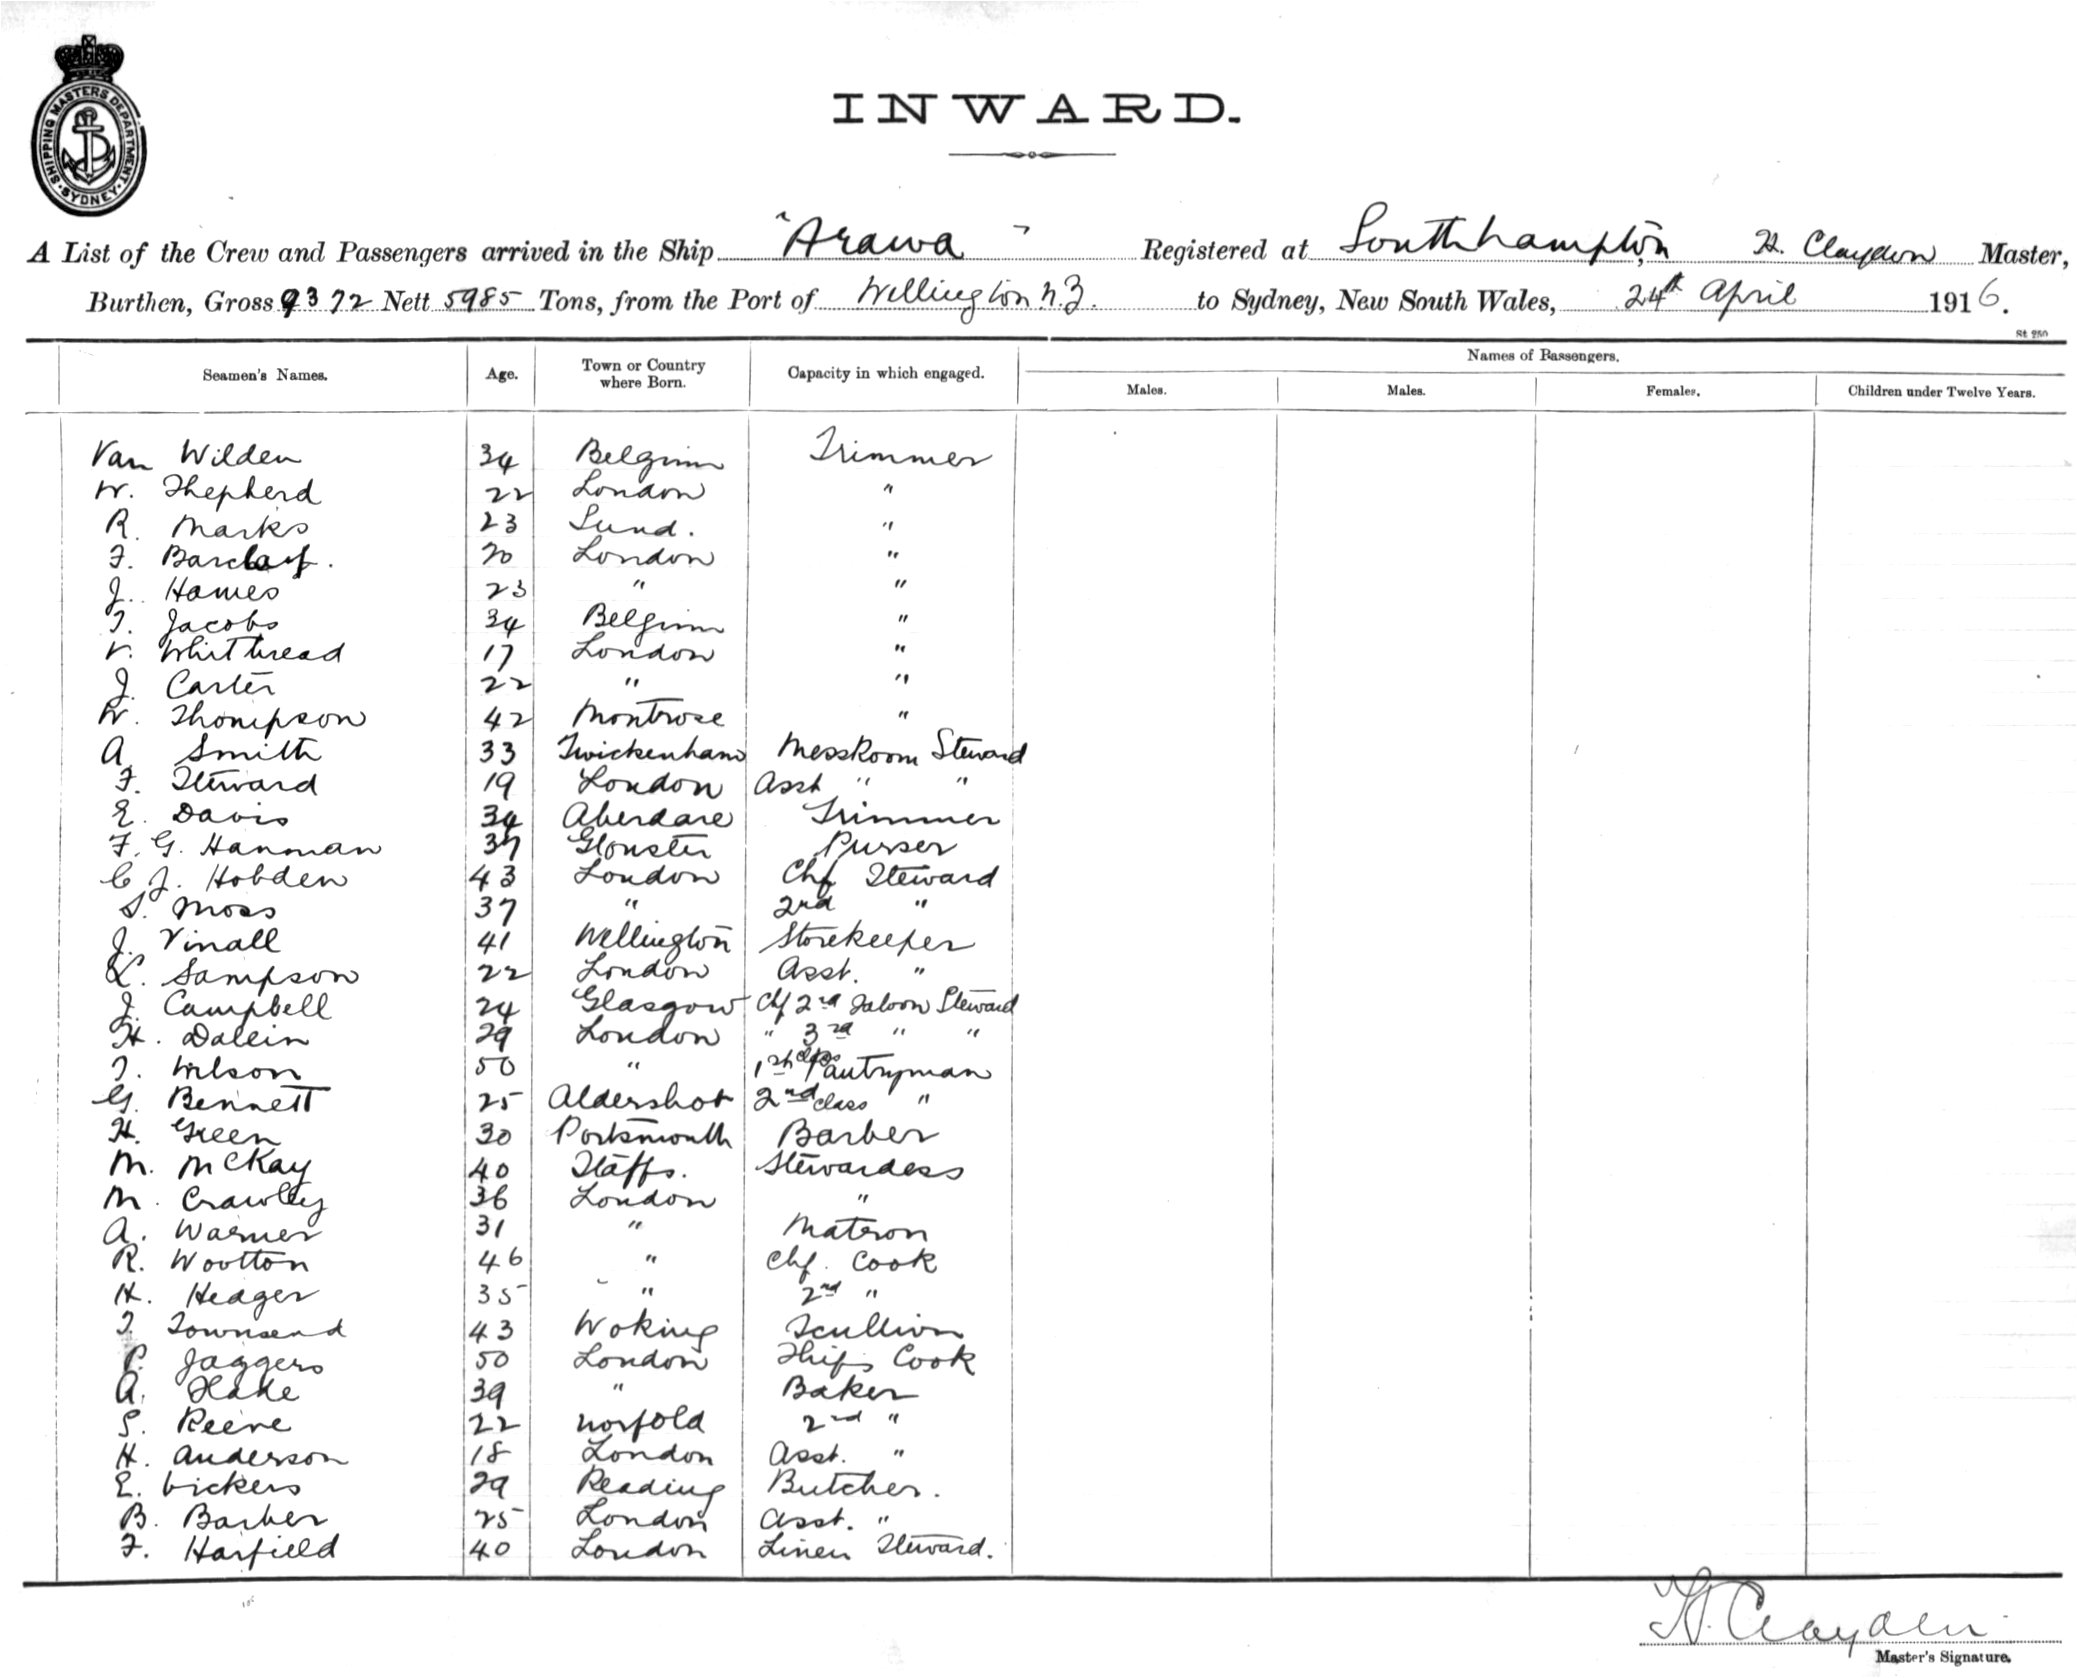 SHIPPING MASTERS DEPARTMENT
SYDNEY
INWARD.
A List of the Crew and Passengers arrived in the Ship "Arawa" Registered at Southhampton, H. Claydon Master,
Burthen, Gross 9372 Nett 5985 Tons, from the Port of Wellington N.Z. to Sydney, New South Wales, 24th April 1916.
St 250
Seamen's Names. Age. Town or Country where Born. Capacity in which engaged. Names of Passengers.
Males. Males. Females. Children under Twelve Years.
Van Wilden 34 Belgium Trimmer
W. Shepherd 22 London "
R. Marks 23 Sund. "
F. Barclay. 20 London "
J. Hawes 23 " "
T. Jacobs 34 Belgium "
V. Whitbread 17 London "
J. Carter 22 " "
W. Thompson 42 Montrose "
A. Smith 33 Twickenham MessRoom Steward
F. Steward 19 London Asst " "
E. Davis 34 Aberdare Trimmer
F. G. Hanman 37 Glouster Purser
C. J. Hobden 43 London Chf Steward
S. Moss 37 " 2nd "
J. Vinall 41 Wellington Storekeeper
L. Sampson 22 London Asst. "
J. Campbell 24 Glasgow Chf 2nd Saloon Steward
H. Dallin 29 London " 3rd " "
T. Wilson 50 " 1st class Pantryman
G. Bennett 25 Aldershot 2nd class "
H. Green 30 Portsmouth Barber
M. McKay 40 Staffs. Stewardess
M. Crawley 36 London "
A. Warner 31 " Matron
R. Wootton 46 " Chf. Cook
H. Hedger 35 " 2nd "
T. Townsend 43 Woking Scullion
P. Jaggers 50 London Ships Cook
A. Slake 39 " Baker
S. Reeve 22 Norfold 2nd "
H. Anderson 18 London Asst. "
E. Vickers 29 Reading Butcher.
B. Barber 25 London Asst. "
F. Harfield 40 London Linen Steward.
H. Clayden
Master's Signature.